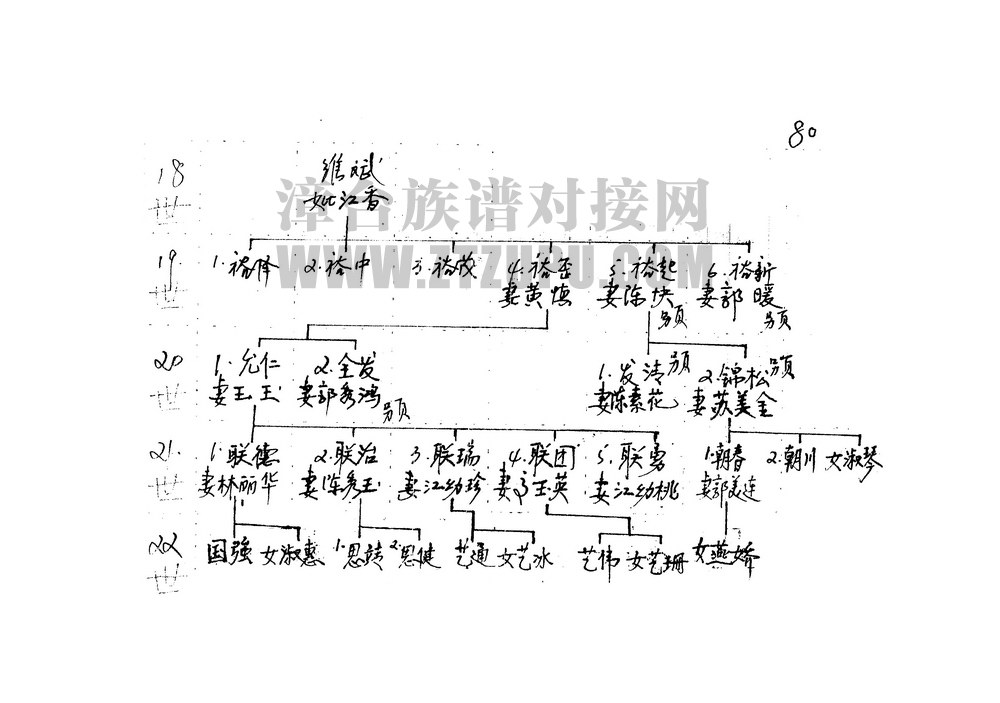 80
18世
维斌
妣江香
漳台族谱对接网
WWW.ZTZUPU.COM
19世
1.裕泽 2.裕中 3.裕茂 4.裕丕 5.裕起 6.裕新
妻黄慎 妻陈快 妻郭暖
另页 另页
20世
1.允仁 2.全发 1.发清 另页 2.锦松 另页
妻王玉 妻郭秀鸿 另页 妻陈素花 妻苏美金
21世
1.联德 2.联治 3.联瑞 4.联团 5.联勇 1.朝春 2.朝川 女淑琴
妻林丽华 妻陈秀玉 妻江幼珍 妻 玉英 妻江幼桃 妻郭美连
22世
国强 女淑惠 1.思靖 2.思健 艺通 女艺冰 艺伟 女艺珊 女燕娇